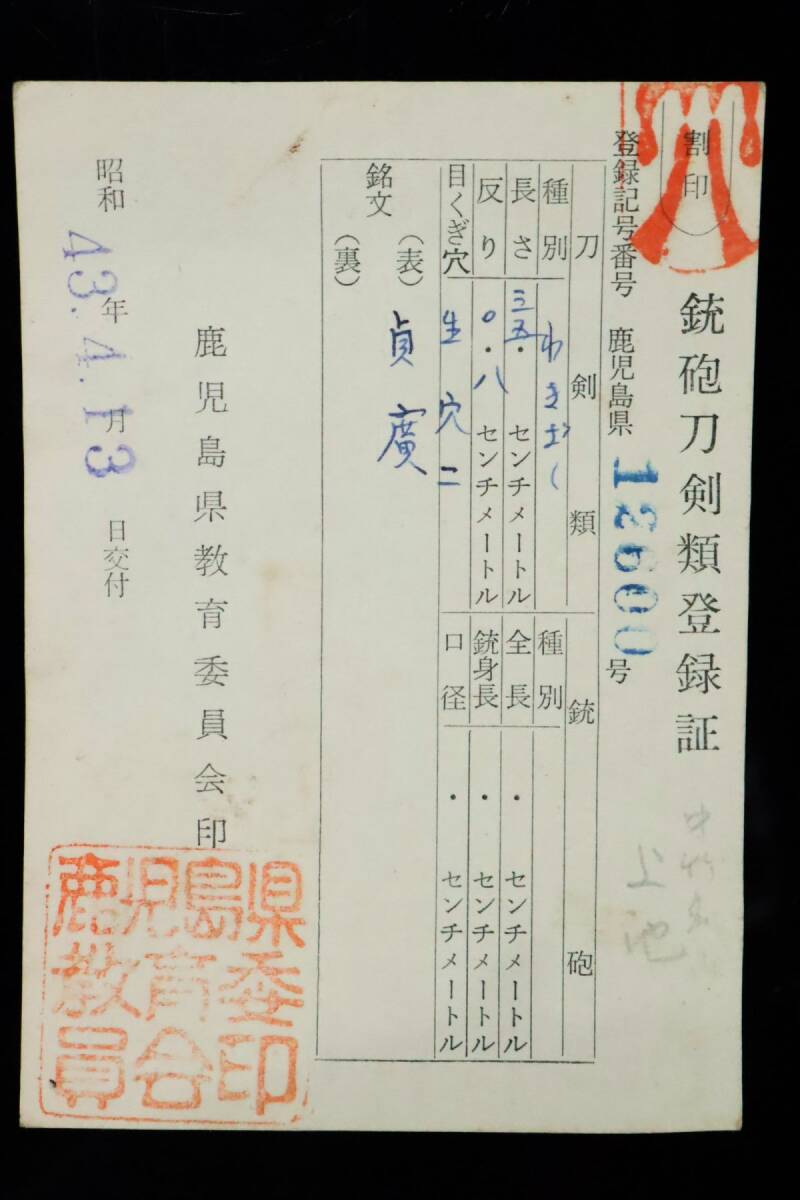 割印
銃砲刀剣類登録証
登録記号番号 鹿児島県 12600号
刀剣類 銃砲
種別 わきざし 種別
長さ 三五・ センチメートル 全長 ・ センチメートル
反り 〇・八 センチメートル 銃身長 ・ センチメートル
目くぎ穴 生穴二 口径 ・ センチメートル
銘文 (表) 貞廣
(裏)
鹿児島県教育委員会印
鹿児島県
教育委
員会印
昭和 43年 4月 13日交付
上池